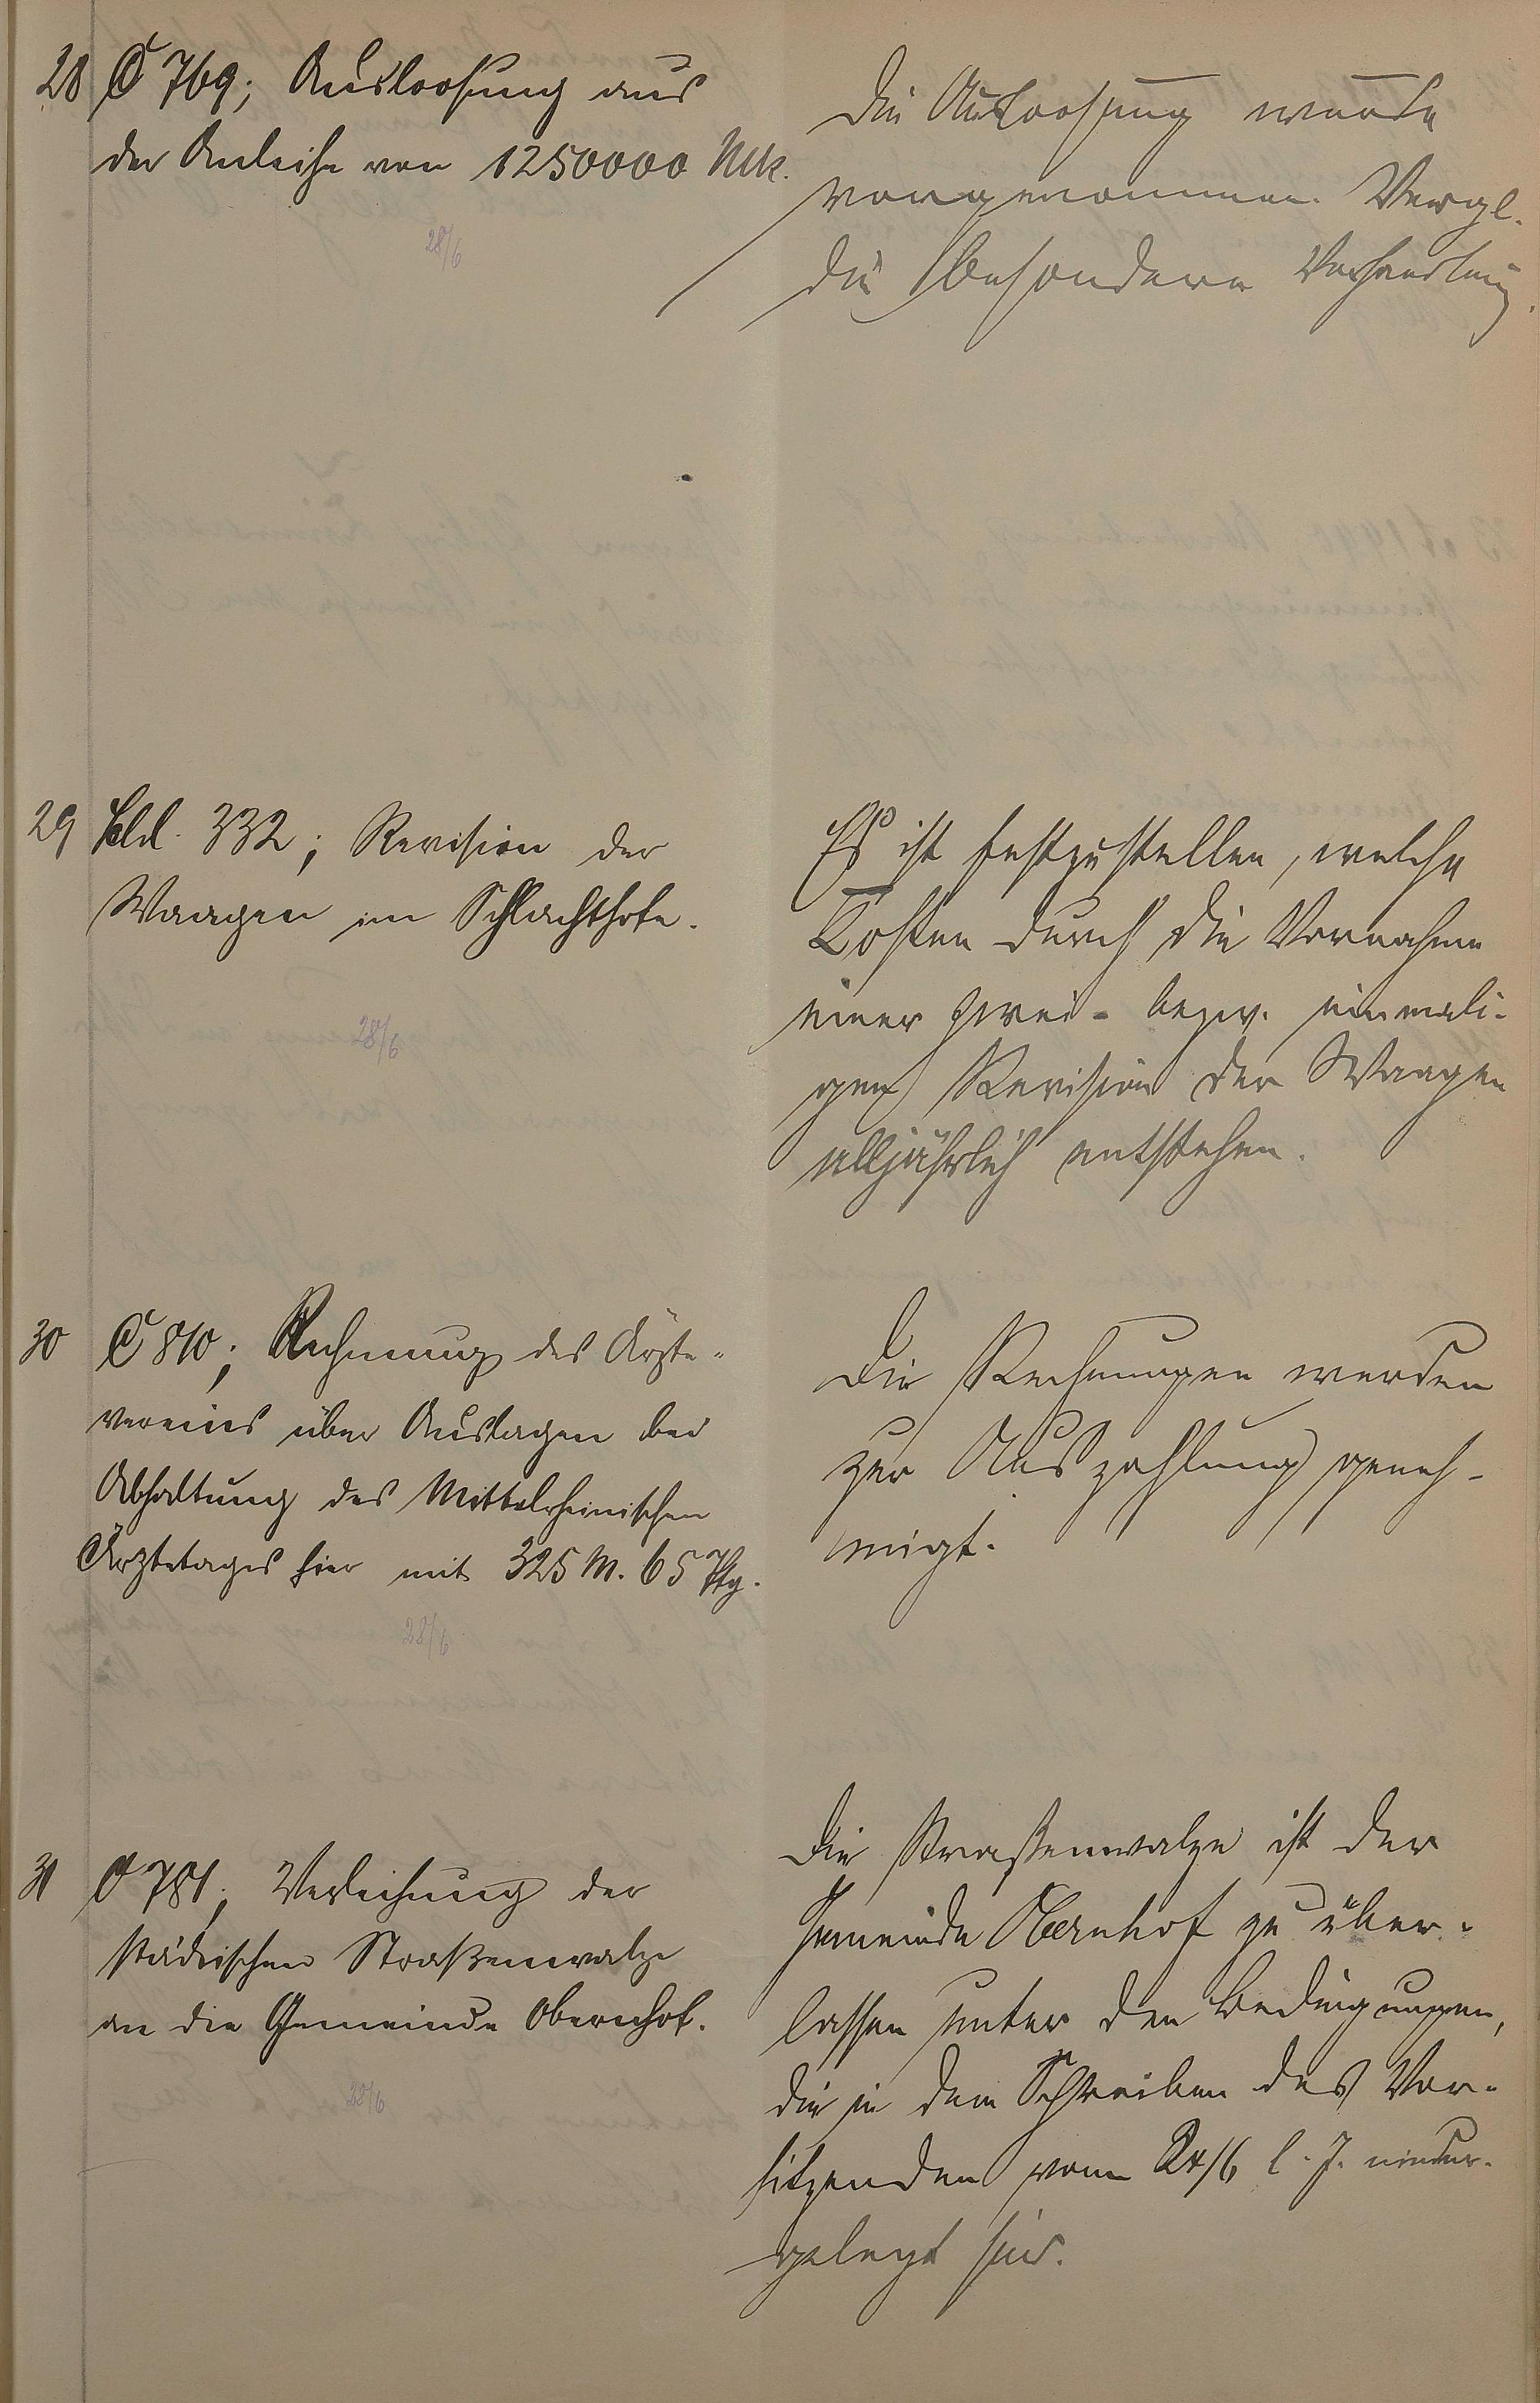 28 C 769; Ausloosung aus
der Anleihe von 1250000 Mk.
28/6
Die Ausloosung wurde
vorgenommen. Vergl.
die besondere Verhandlung.
29 332; Revision der
Waagen im Schlachthofe.
28/6
Es ist festzustellen, welche
Kosten durch die Vornahme
einer zwei- bezw. einmali-
gen Revision der Waagen
alljährlich entstehen.
30 C 810; Rechnung des Ärzte-
vereins über Auslagen bei
Abhaltung des Mittelrheinischen
Ärztetages hier mit 325 M. 65 Pfg.
28/6
Die Rechnungen werden
zur Auszahlung geneh-
migt.
31 C 781; Verleihung der
städtischen Straßenwalze
an die Gemeinde Obernhof.
28/6
Die Straßenwalze ist der
Gemeinde Obernhof zu über-
lassen unter den Bedingungen,
die in dem Schreiben des Vor-
sitzenden vom 24/6 l. J. nieder-
gelegt sind.